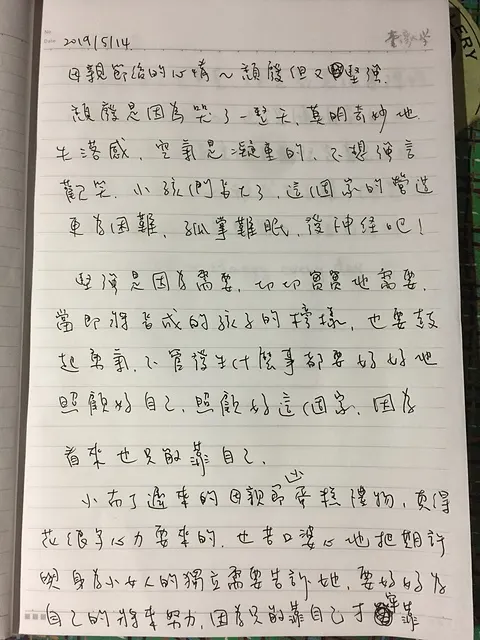 2019/5/14
母親節後的心情～頹廢但又堅強.
頹廢是因為哭了一整天, 莫明奇妙地
失落感, 空氣是凝重的, 不想強言
歡笑. 小孩們皆大了, 這個家的營造
更為困難, 孤掌難眠, 後神經吧!
堅強是因為需要, 切切實實地需要,
當即將皆成的孩子的榜樣, 也要鼓
起勇氣, 不管發生什麼事都要好好地
照顧好自己, 照顧好這個家, 因為
看來也只能靠自己.
小布丁遞來的母親節小蛋糕禮物, 真得
花很多心力要來的, 也苦口婆心地把期許
與身為小女人的獨立需要告訴她, 要好好為
自己的將來努力, 因為只能靠自己才牢靠